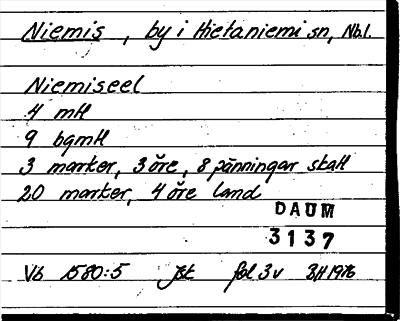 Niemis, by i Hietaniemi sn, Nb.l.
Niemiseel
4 mtl
9 bgmtl
3 marker, 3 öre, 8 pänningar skatt
20 marker, 4 öre land
DAUM
3137
Vb 1580:5 jst fol 3v BH 1976